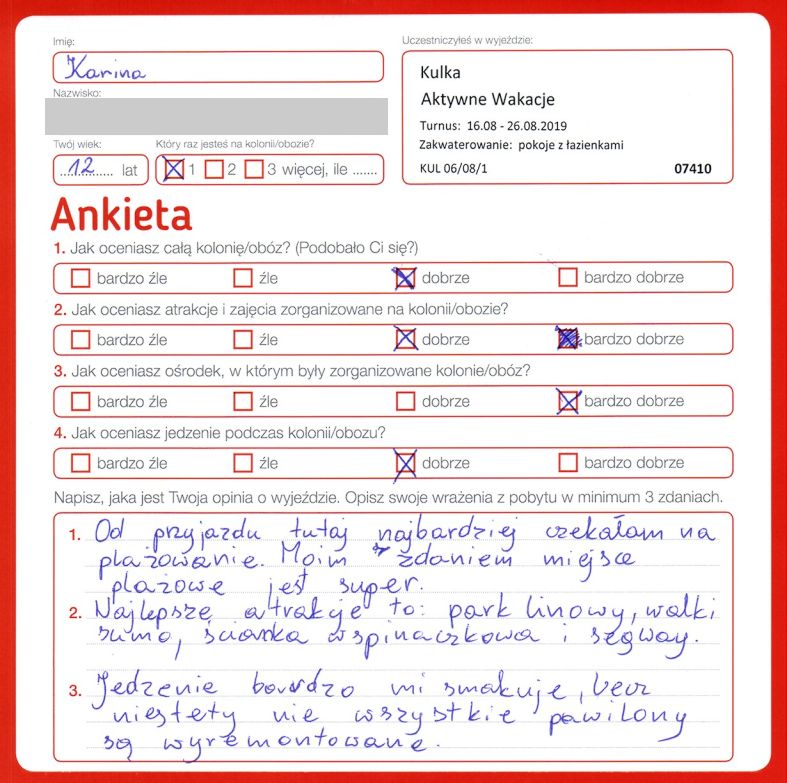 Imię:
Karina
Nazwisko:
Twój wiek:
12 lat
Który raz jesteś na kolonii/obozie?
1 2 3 więcej, ile .......
Uczestniczyłeś w wyjeździe:
Kulka
Aktywne Wakacje
Turnus: 16.08 - 26.08.2019
Zakwaterowanie: pokoje z łazienkami
KUL 06/08/1 07410
Ankieta
1. Jak oceniasz całą kolonię/obóz? (Podobało Ci się?)
bardzo źle źle dobrze bardzo dobrze
2. Jak oceniasz atrakcje i zajęcia zorganizowane na kolonii/obozie?
bardzo źle źle dobrze bardzo dobrze
3. Jak oceniasz ośrodek, w którym były zorganizowane kolonie/obóz?
bardzo źle źle dobrze bardzo dobrze
4. Jak oceniasz jedzenie podczas kolonii/obozu?
bardzo źle źle dobrze bardzo dobrze
Napisz, jaka jest Twoja opinia o wyjeździe. Opisz swoje wrażenia z pobytu w minimum 3 zdaniach.
1. Od przyjazdu tutaj najbardziej czekałam na
plażowanie. Moim zdaniem miejsce
plażowe jest super.
2. Najlepsze atrakcje to: park linowy, walki
sumo, ścianka wspinaczkowa i segway.
3. Jedzenie bardzo mi smakuje, lecz
niestety nie wszystkie pawilony
są wyremontowane.